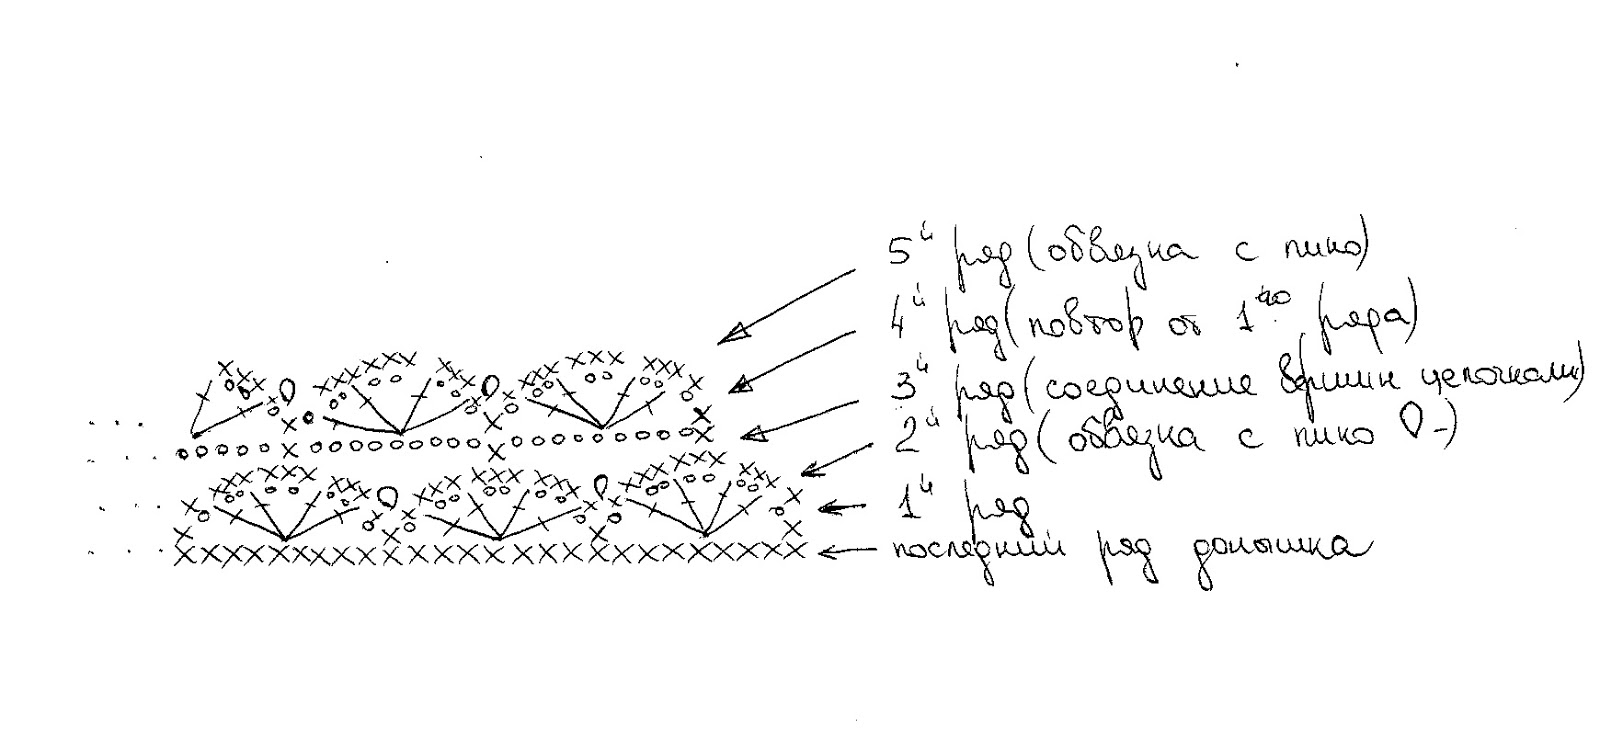 5й ряд (обвязка с пико)
4й ряд (повтор от 1го ряда)
3й ряд (соединение вершин цепочками)
2й ряд (обвязка с пико -)
1й ряд
последний ряд донышка